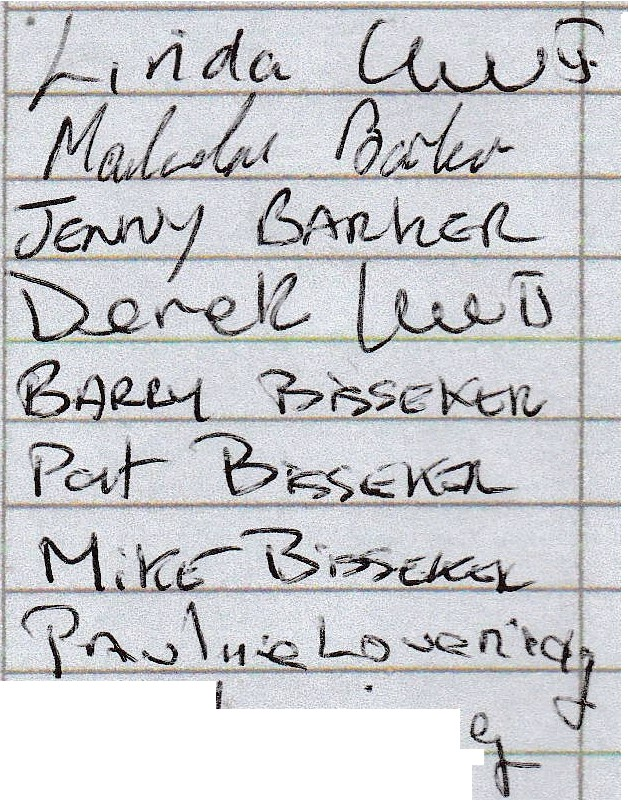 Linda
Malcolm Barker
JENNY BARKER
Derek
BARRY BISSEKER
Pat BISSEKER
MIKE BISSEKER
Pauline Lovering